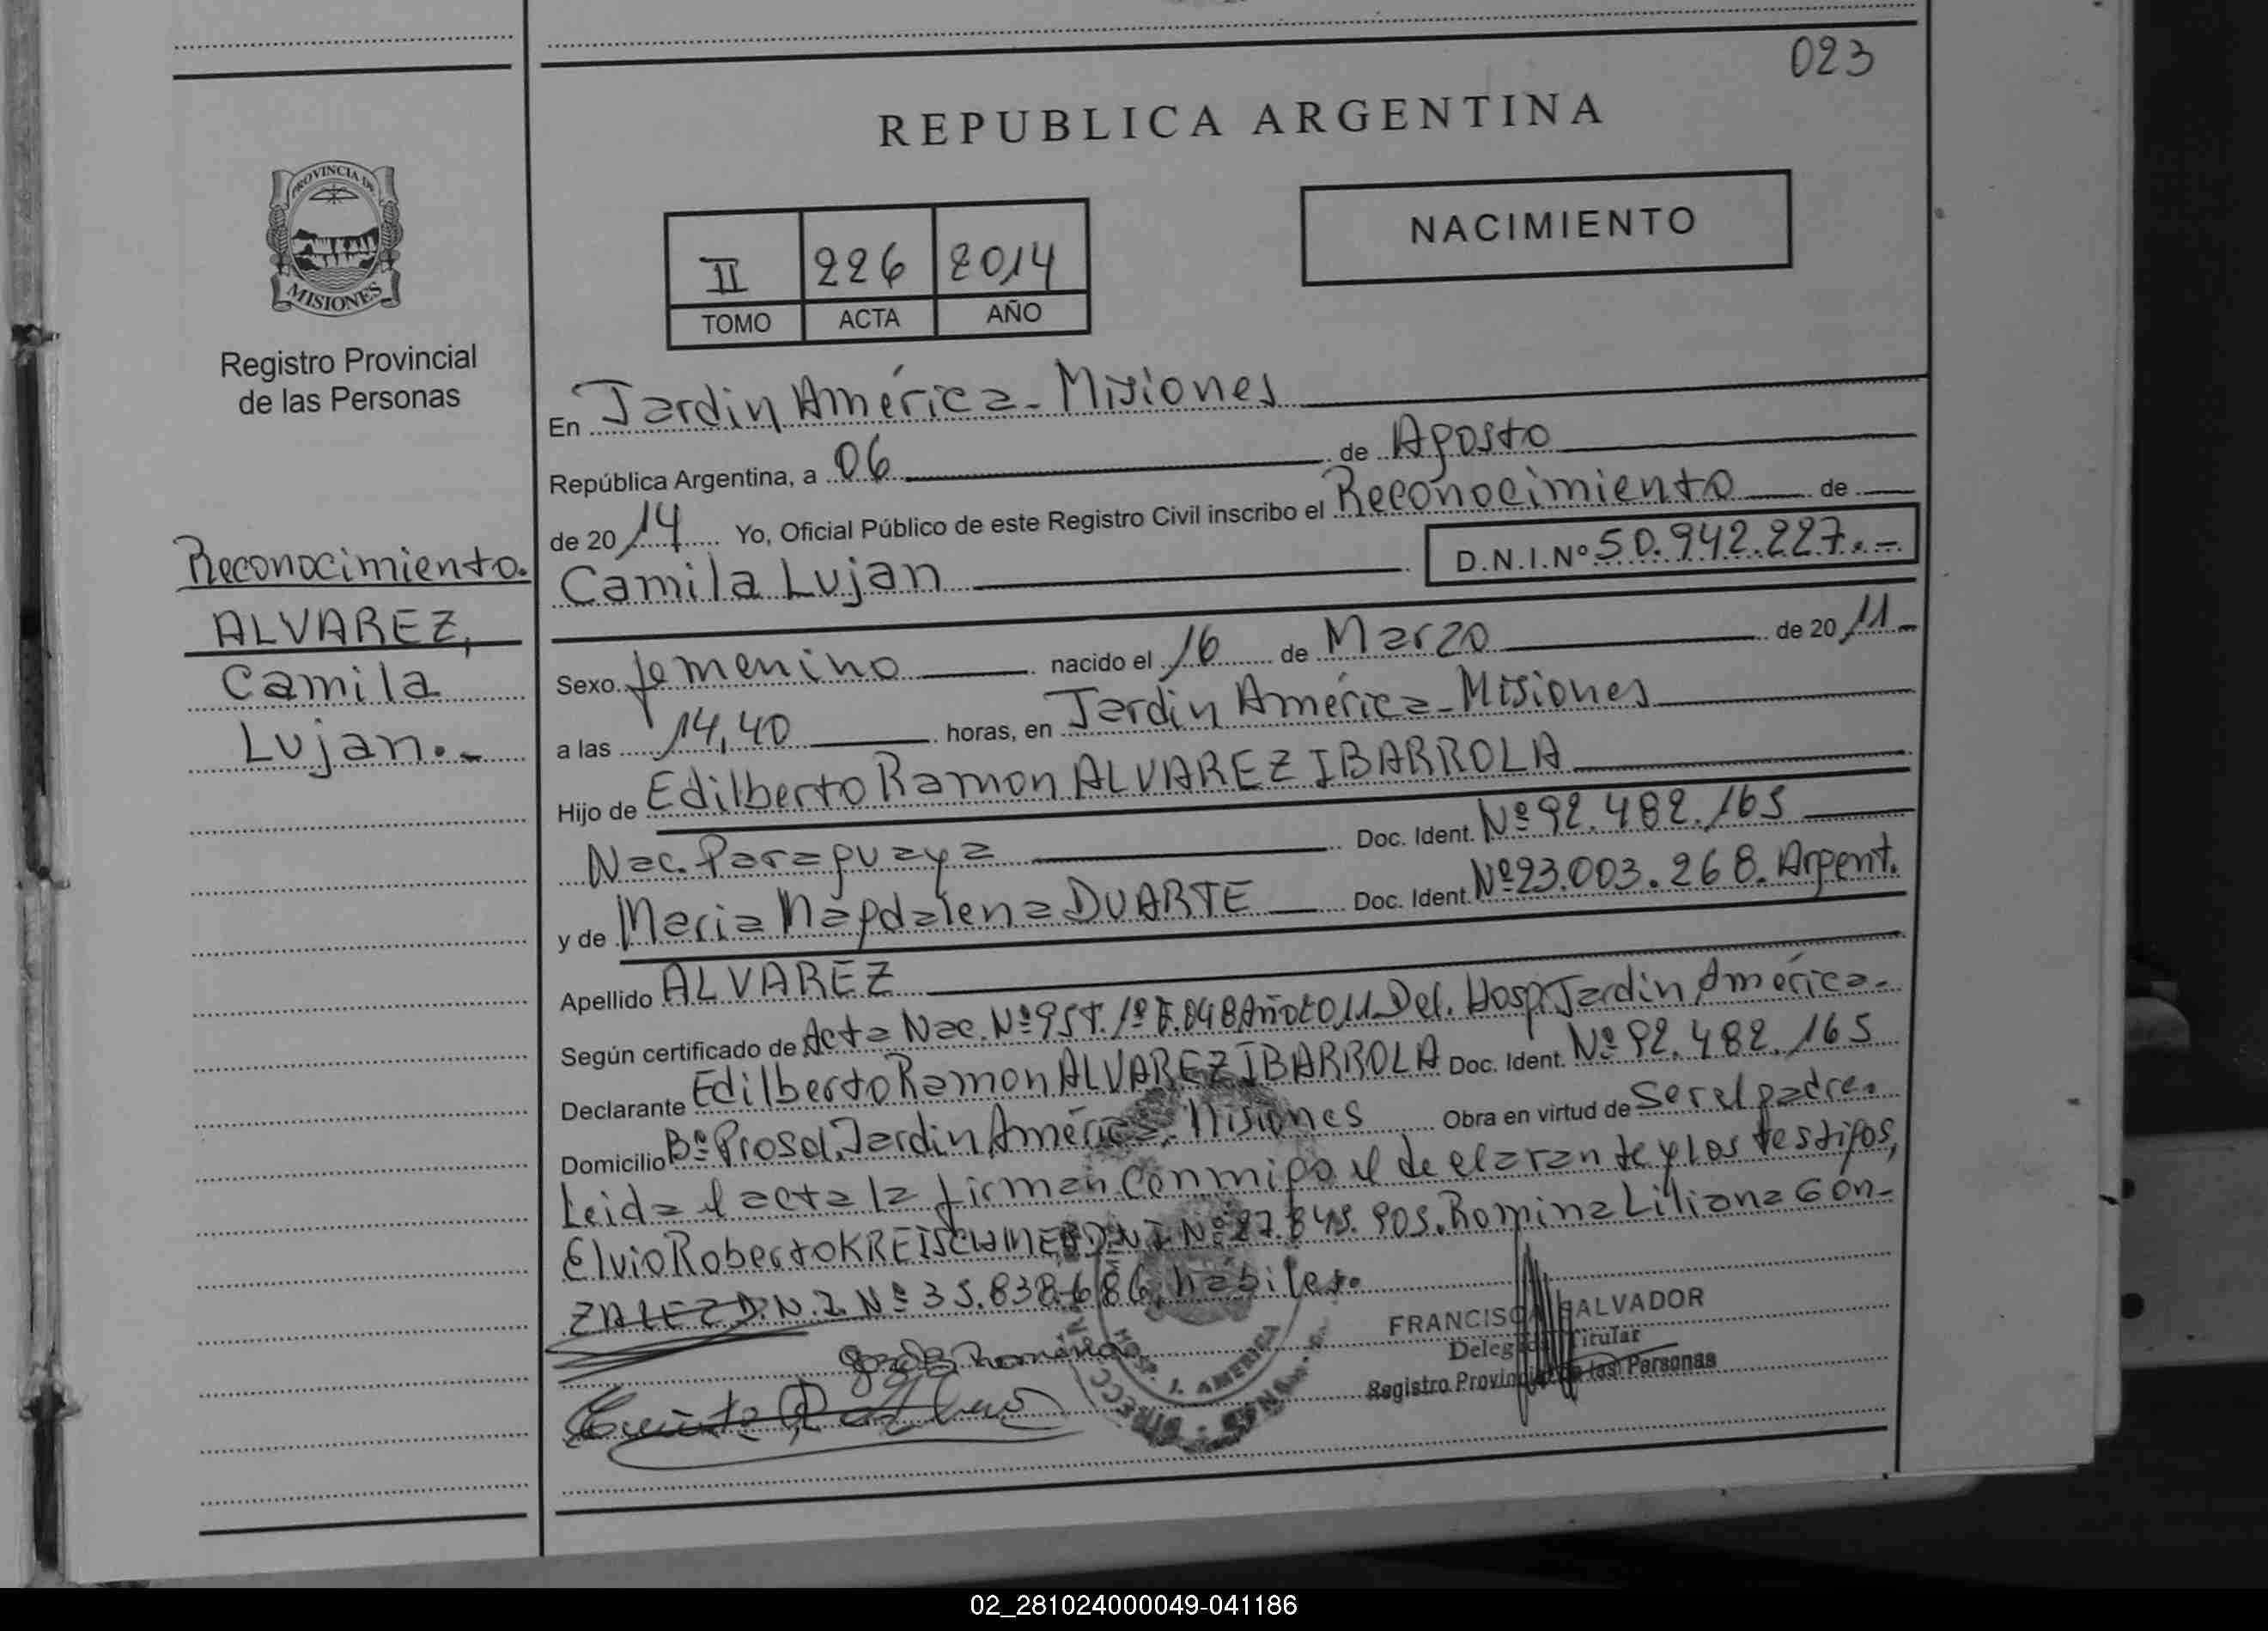 023
REPUBLICA ARGENTINA
NACIMIENTO
PROVINCIA DE
MISIONES
II 226 2014
TOMO ACTA AÑO
Registro Provincial
de las Personas
En Jardin América - Misiones
República Argentina, a 06 de Agosto
de 2014 Yo, Oficial Público de este Registro Civil inscribo el Reconocimiento de
Camila Lujan D.N.I.Nº 50.942.227.-
Reconocimiento.
ALVAREZ,
Camila
Lujan.-
Sexo femenino nacido el 16 de Marzo de 2011
a las 14,40 horas, en Jardin América - Misiones
Hijo de Edilberto Ramon ALVAREZ IBARROLA
Nac. Paraguaya Doc. Ident. Nº 92.482.165
y de Maria Magdalena DUARTE Doc. Ident. Nº 23.003.268. Argent.
Apellido ALVAREZ
Según certificado de Acta Nac. Nº 95 T. 1º F. 048 Año 2011 Del. Hosp. Jardin América-
Declarante Edilberto Ramon ALVAREZ IBARROLA Doc. Ident. Nº 92.482.165
Domicilio Bº Prosol, Jardin América, Misiones Obra en virtud de Ser el padre.
Leida el acta la firman conmigo el declarante y los testigos,
Elvio Roberto KREISCHMER D.N.I. Nº 27.845.905. Romina Liliana GON-
ZALEZ D.N.I. Nº 35.838.686, habiles.
HOSP. J. AMERICA
FRANCISCA SALVADOR
Delegada Titular
Registro Provincial de las Personas
02_281024000049-041186